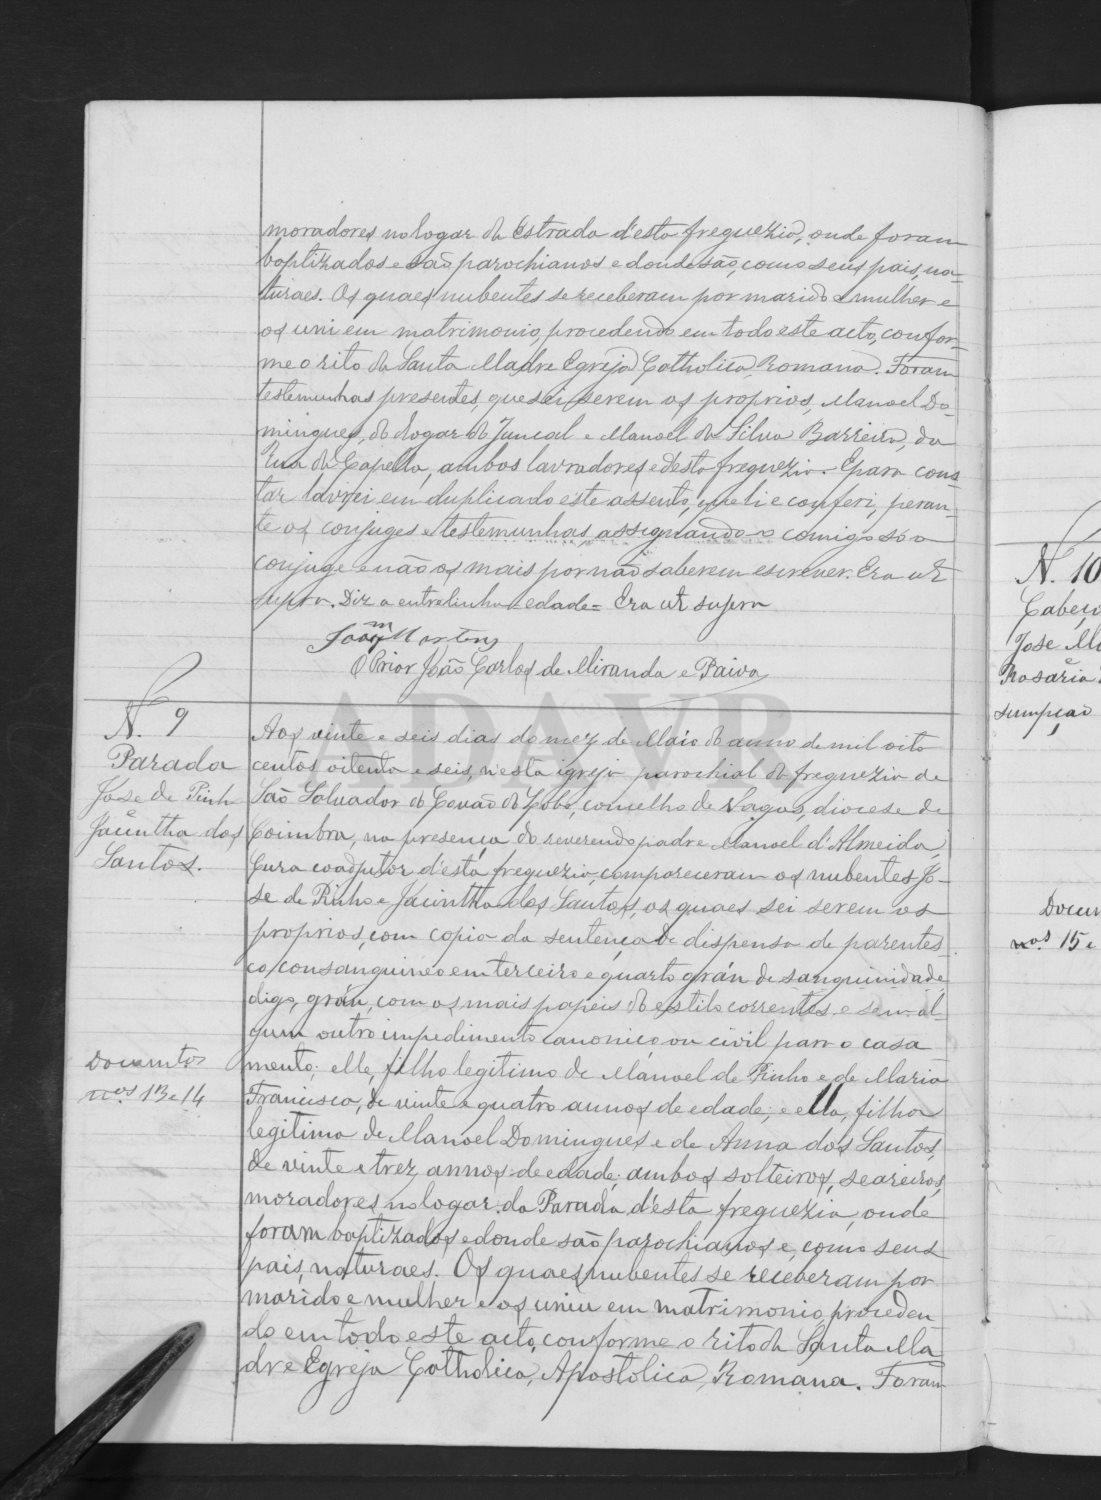 moradores no logar da Estrada d'esta freguezia, onde foram
baptizados e são parochianos e donde são, como seus pais, na-
turaes. Os quaes nubentes se receberam por marido e mulher e
os uni em matrimonio, procedendo em todo este acto, confor-
me o rito da Santa Madre Egreja Catholica Romana. Foram
testemunhas presentes, que sei serem os proprios, Manoel Do-
mingues, do logar do Juncal e Manoel da Silva Barreira, da
Rua da Capella, ambos lavradores e desta freguezia. E para cons-
tar lavrei em duplicado este assento, que li e conferi, peran-
te os conjuges e testemunhas assignando o comigo só o
conjuge e não os mais por não saberem escrever. Era ut
supra. Diz a entrelinha = edade = Era ut supra
Joaqm Martins
O Prior João Carlos de Miranda e Paiva
N. 9
Parada
Jose de Pinho
e
Jacintha dos
Santos.
Documtos
nos 13 e 14
Aos vinte e seis dias do mez de Maio do anno de mil oito
centos oitenta e seis, n'esta igreja parochial da freguezia de
São Salvador do Covão do Lobo, concelho de Vagos, diocese de
Coimbra, na presença do reverendo padre Manoel d'Almeida,
Cura coadjutor d'esta freguezia, compareceram os nubentes Jo-
se de Pinho e Jacintha dos Santos, os quaes sei serem os
proprios, com copia da sentença de dispensa de parentes
co, consanguineo em terceiro e quarto gráu de sanguinidade
digo, gráu, com os mais papeis do estilo correntes e sem al-
gum outro impedimento canonico, ou civil para o casa
mento; elle, filho legitimo de Manoel de Pinho e de Maria
Francisca, de vinte e quatro annos de edade; e ella, filha
legitima de Manoel Domingues e de Anna dos Santos,
de vinte e trez annos de edade; ambos solteiros, seareiros,
moradores no logar da Parada, d'esta freguezia, onde
foram baptizados e donde são parochianos e, como seus
pais, naturaes. Os quaes nubentes se receberam por
marido e mulher e os uniu em matrimonio, proceden
do em todo este acto, conforme o rito da Santa Ma
dre Egreja Catholica, Apostolica, Romana. Foram
N. 10
Jose M
e
Rosaria
sumpção
Docum
nos 15 e
ADAVR